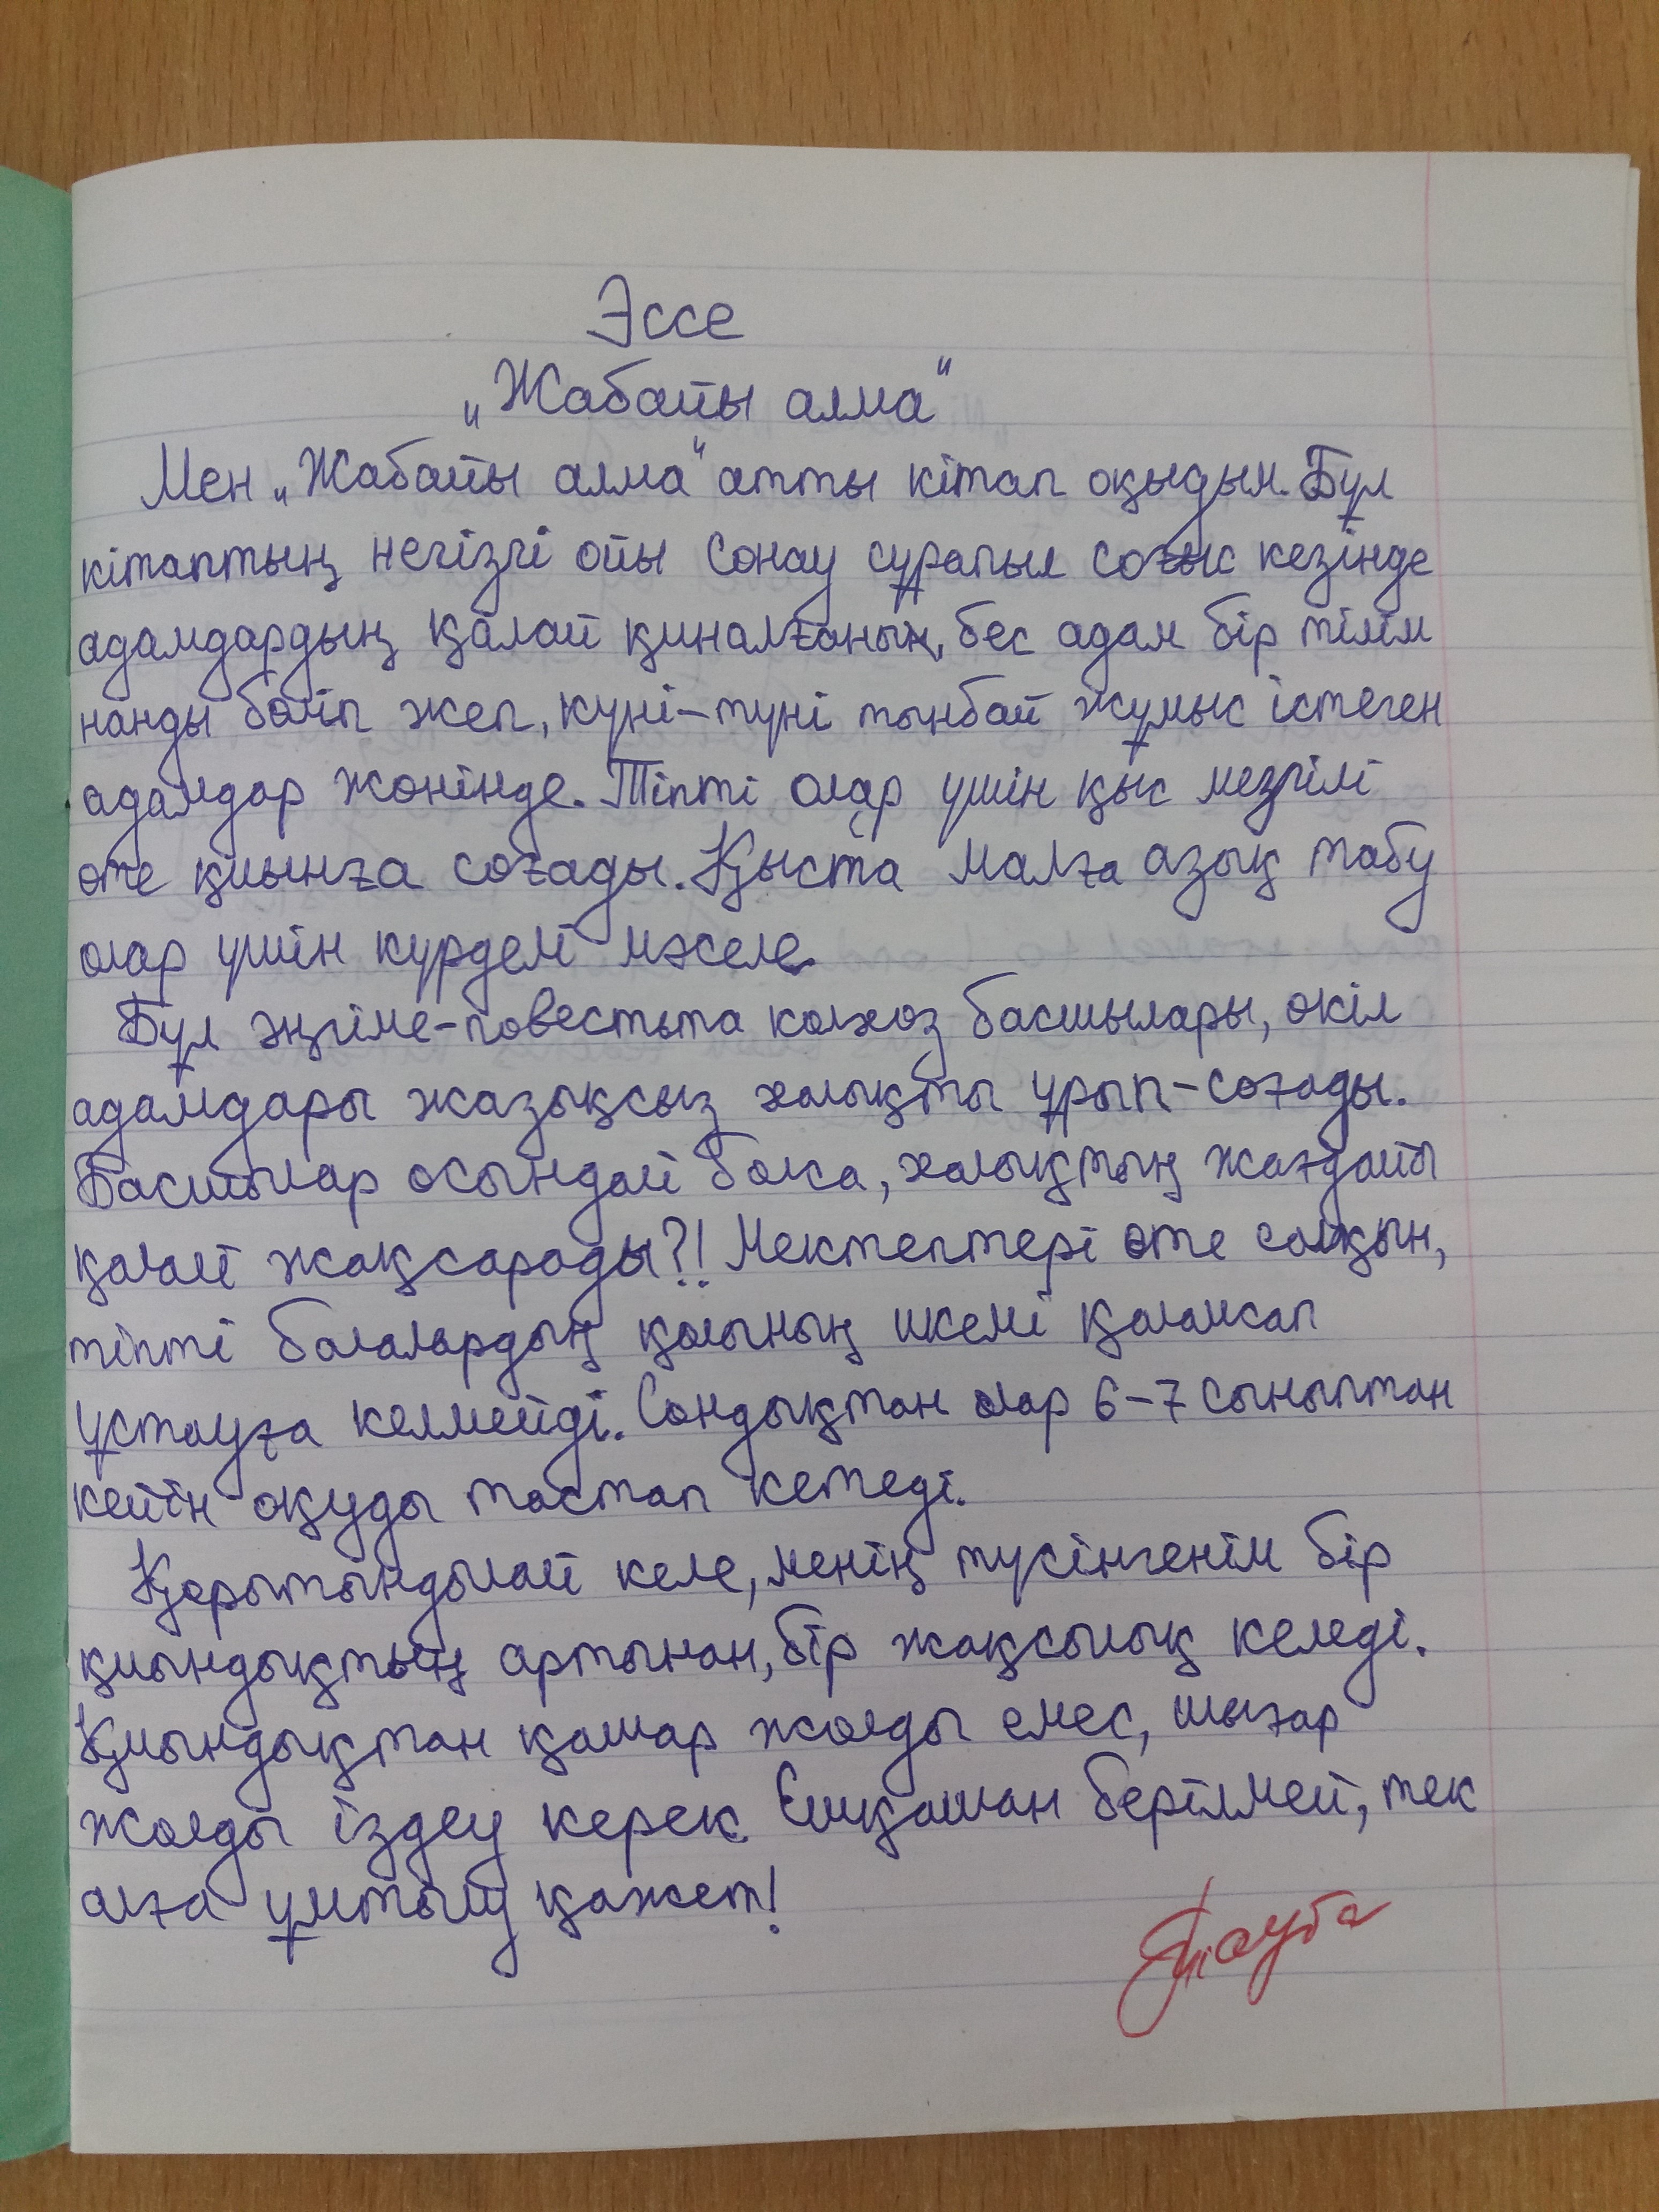 Эссе
„Жабайы алма“
Мен „Жабайы алма“ атты кітап оқыдым. Бұл
кітаптың негізгі ойы сонау сұрапыл соғыс кезінде
адамдардың қалай қиналғанын, бес адам бір тілім
нанды бөліп жеп, күні-түні тынбай жұмыс істеген
адамдар жөнінде. Тіпті олар үшін қыс мезгілі
өте қиынға соғады. Қыста малға азық табу
олар үшін күрделі мәселе.
Бұл әңгіме-повестьта колхоз басшылары, өкіл
адамдары жазықсыз халықты ұрып-соғады.
Басшылар осындай болса, халықтың жағдайы
қалай жақсарады?! Мектептері өте салқын,
тіпті балалардың қолының икемі қаламсап
ұстауға келмейді. Сондықтан олар 6-7 сыныптан
кейін оқуды тастап кетеді.
Қорытындылай келе, менің түсінгенім бір
қиындықтың артынан, бір жақсылық келеді.
Қиындықтан қашар жолды емес, шығар
жолды іздеу керек. Ешқашан берілмей, тек
алға ұмтылу қажет!